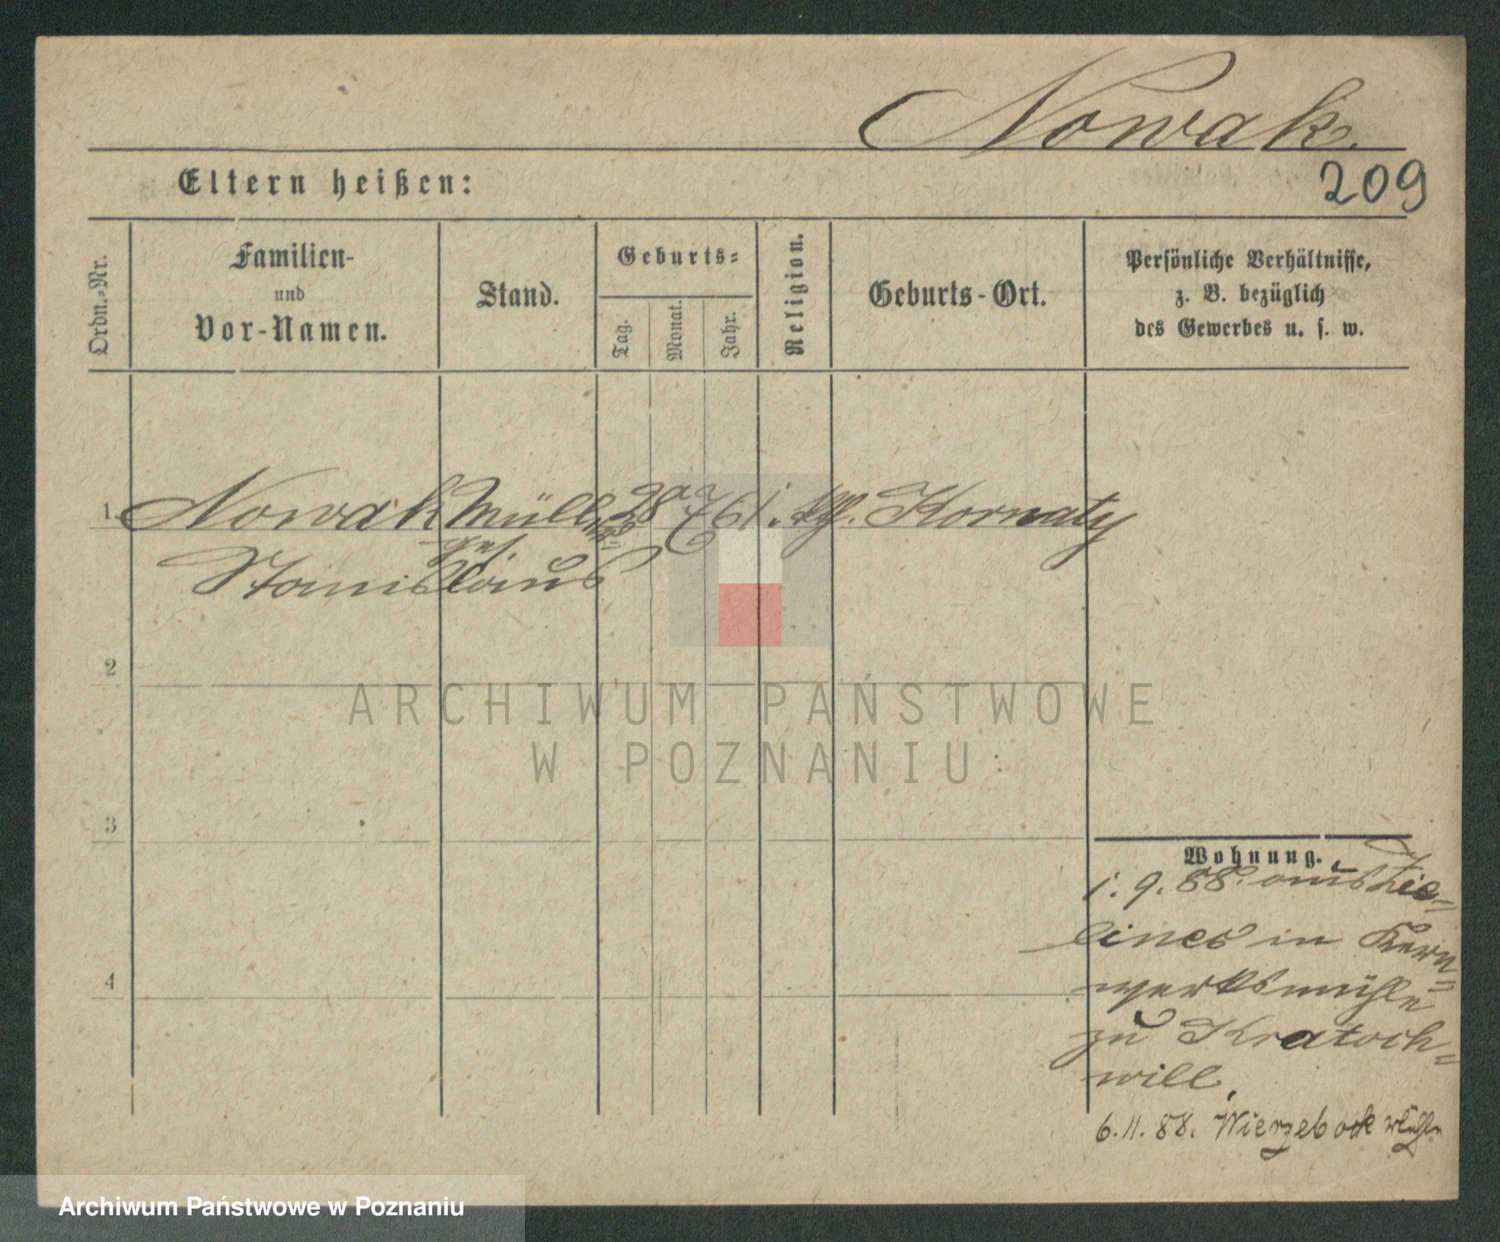 Nowak.
209
Eltern heißen:
Ordn.-Nr.
Familien-
und
Vor-Namen.
Stand.
Geburts-
Tag.
Monat.
Jahr.
Religion.
Geburts-Ort.
Persönliche Verhältnisse,
z. B. bezüglich
des Gewerbes u. s. w.
1. Nowak Müller 28 61. kth. Kornaty
ges.
Stanislaus
2
ARCHIWUM PAŃSTWOWE
W POZNANIU
3
Wohnung.
1. 9. 88. aus
in Kern-
werksmühle
zu Kratoch-
will.
4
6. 11. 88. Wierzebock
Archiwum Państwowe w Poznaniu